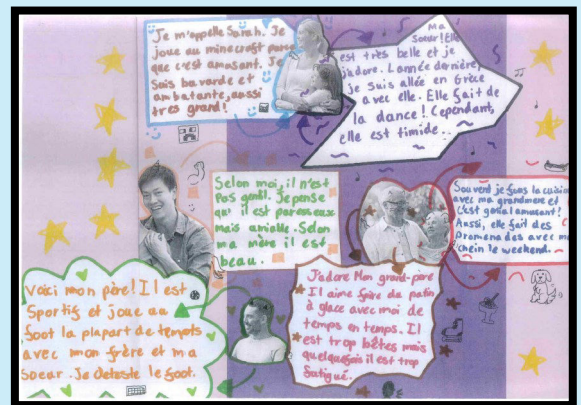 Je m'appelle Sarah. Je
joue au minecraft parce
que c'est amasant. Je
Suis bavarde et
ambatante, aussi
tres grand!
Ma
Soeur! Elle
est très belle et je
j'adore. L'année dernière,
je suis allée en Grèce
avec elle. Elle fait de
la dance! Cependant,
elle est timide..
Selon moi, il n'est
Pas gentil. Je pense
qu il est paresseux
mais amiable. Selon
ma mère il est
beau.
Souvent je fais la cuisine
avec ma grandmere et
C'est genial amusant!
Aussi, elle fait des
Promenades avec mon
chein le weekend.
Voici mon père! Il est
Sportif et joue au
foot la plapart de temots
avec mon frère et ma
soear. Je deteste le foot.
J'adore Mon grand-pare
Il aime faire de patin
à glace avec moi de
temps en temps. Il
est trop bêtes mais
quelquefois il est trop
fatigué.